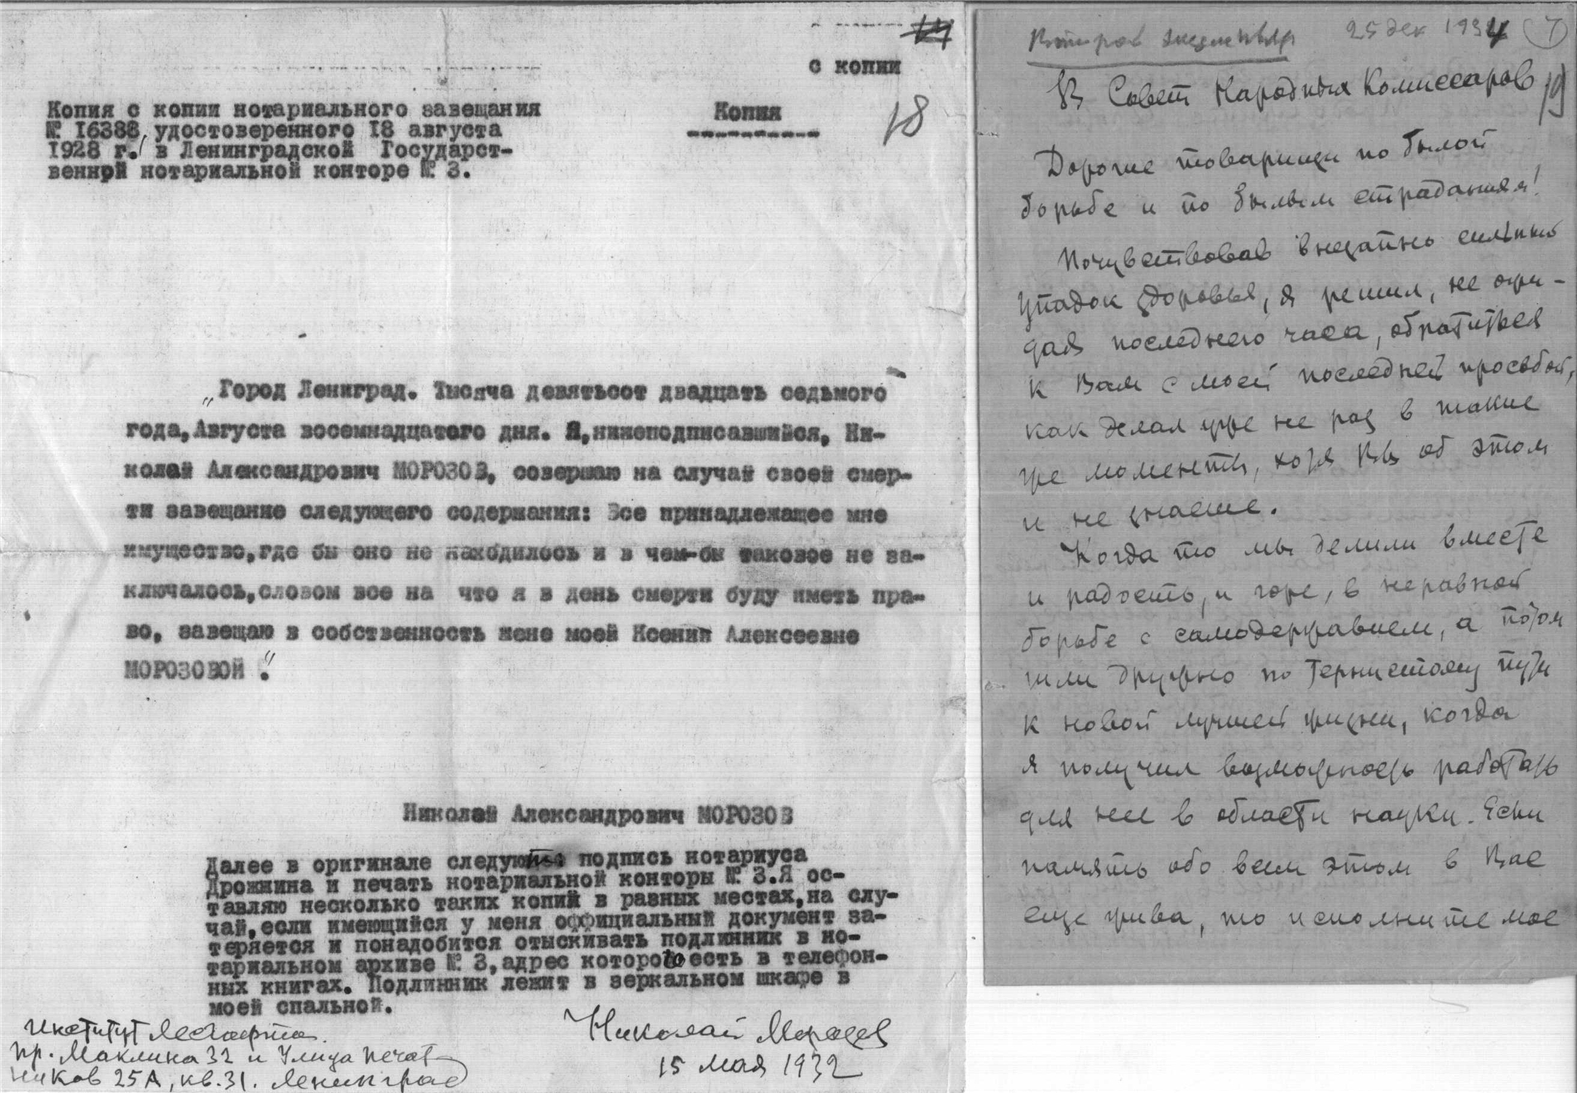 14
с копии
Копия с копии нотариального завещания
№ 16388, удостоверенного 18 августа
1928 г. в Ленинградской Государст-
венной нотариальной конторе № 3.
Копия
18
„Город Лениград. Тысяча девятьсот двадцать седьмого
года, Августа восемнадцатого дня. Я, нижеподписавшийся, Ни-
колай Александрович МОРОЗОВ, совершаю на случай своей смер-
ти завещание следующего содержания: Все принадлежащее мне
имущество, где бы оно не находилось и в чем-бы таковое не за-
ключалось, словом все на что я в день смерти буду иметь пра-
во, завещаю в собственность жене моей Ксении Алексеевне
МОРОЗОВОЙ".
Николай Александрович МОРОЗОВ
Далее в оригинале следует подпись нотариуса
Дрожжина и печать нотариальной конторы № 3. Я ос-
тавляю несколько таких копий в разных местах, на слу-
чай, если имеющийся у меня оффициальный документ за-
теряется и понадобится отыскивать подлинник в но-
тариальном архиве № 3, адрес которого есть в телефон-
ных книгах. Подлинник лежит в зеркальном шкафе в
моей спальной.
Институт Лесгафта.
пр. Маклина 32 и Улица Печат-
ников 25А, кв. 31. Ленинград
Николай Морозов
15 мая 1932
Второй экземпляр 25 дек 1934 7
В Совет Народных Комиссаров
19
Дорогие товарищи по былой
борьбе и по былым страданиям!
Почувствовав внезапно сильный
упадок здоровья, я решил, не ожи-
дая последнего часа, обратиться
к Вам с моей последней просьбой,
как делал уже не раз в такие
же моменты, хотя Вы об этом
и не знаете.
Когда то мы делили вместе
и радость, и горе, в неравной
борьбе с самодержавием, а потом
шли дружно по тернистому пути
к новой лучшей жизни, когда
я получил возможность работать
для нее в области науки. Если
память обо всем этом в Вас
еще жива, то исполните мое